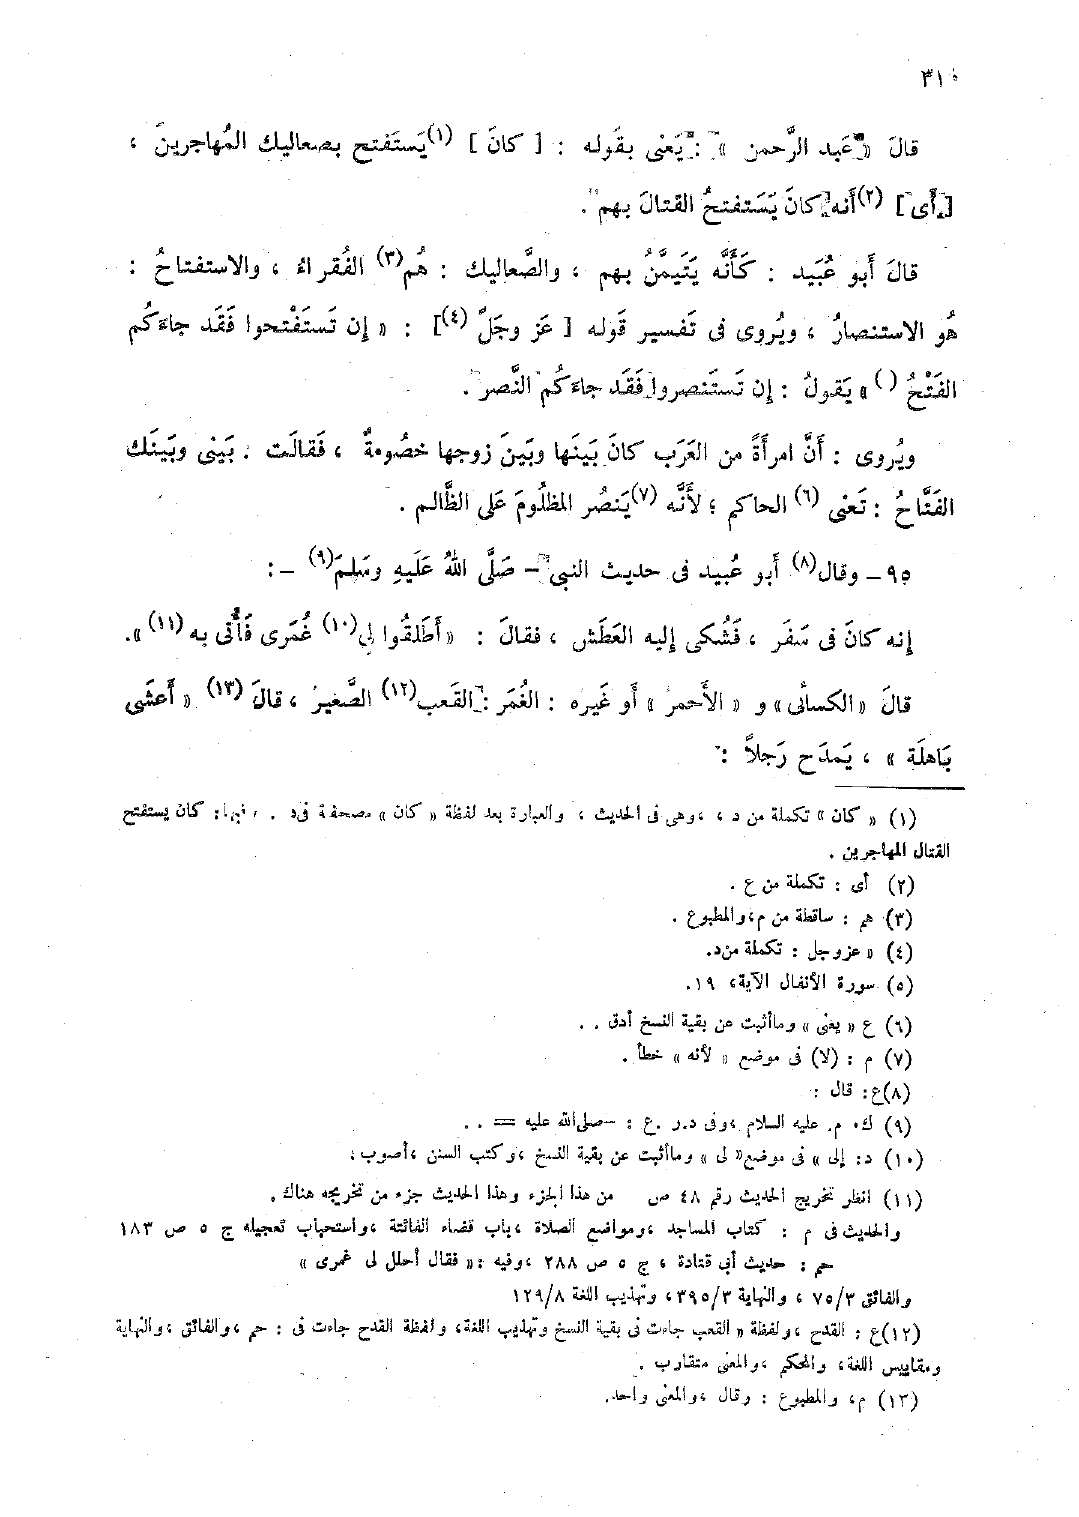 ٣١٠
قالَ « عَبد الرَّحمن » : يَعْنى بقَوله : [ كانَ ] (١) يَستَفتح بصعاليك المُهاجرينَ ،
[ أَى ] (٢) أَنه كانَ يَسَتفتحُ القتالَ بهم .
قالَ أَبو عُبَيد : كَأَنَّه يَتَيمَّنُ بهم ، والصَّعاليك : هُم (٣) الفُقراءُ ، والاستفتاحُ :
هُو الاستنصارُ ، ويُروى فى تَفسير قَوله [ عَز وجَلَّ (٤) ] : « إن تَستَفْتحوا فَقَد جاءَكُم
الفَتْحُ ( ) » يَقولُ : إن تَستَنصروا فَقَد جاءَكُم النَّصر .
ويُروى : أَنَّ امرأَةً من العَرَب كانَ بَينَها وبَينَ زوجها خصُومةٌ ، فَقالَت : بَينى وبَينَك
الفَتَّاحُ : تَعْنى (٦) الحاكم ؛ لأَنَّه (٧) يَنصُر المظلُومَ عَلى الظَّالم .
٩٥ – وقال (٨) أَبو عُبيد فى حديث النبى – صَلَّى اللهُ عَلَيهِ وسَلمَ (٩) – :
إنه كانَ فى سَفَر ، فَشُكى إليه العَطَش ، فقالَ : « أَطلقُوا لى (١٠) غُمَرى فَأُتى به (١١) ».
قالَ « الكسائى » و « الأَحمرُ » أَو غَيره : الغُمَر : القَعب (١٢) الصَّغيرُ ، قالَ (١٣) « أَعشَى
بَاهلَة » ، يَمدَح رَجلاً :
(١) « كان » تكملة من د ، وهى فى الحديث ، والعبارة بعد لفظة « كان » مصحفة فى د . ، فيها : كان يستفتح
القتال المهاجرين .
(٢) أى : تكملة من ع .
(٣) هم : ساقطة من م ، والمطبوع .
(٤) « عز وجل : تكملة من د.
(٥) سورة الأنفال الآية ، ١٩.
(٦) ع « يعنى » وما أثبت عن بقية النسخ أدق . .
(٧) م : (لا) فى موضع « لأنه » خطأ .
(٨) ع : قال :
(٩) ك . م. عليه السلام ، وفى د.ر .ع : – صلى الله عليه = . .
(١٠) د: إلى » فى موضع « لى » وما أثبت عن بقية النسخ ، وكتب السنن ، أصوب ،
(١١) انظر تخريج الحديث رقم ٤٨ ص من هذا الجزء وهذا الحديث جزء من تخريجه هناك .
والحديث فى م : كتاب المساجد ، ومواضع الصلاة ، باب قضاء الفائتة ، واستحباب تعجيله ج ٥ ص ١٨٣
حم : حديث أبى قتادة ، ج ٥ ص ٢٨٨ ، وفيه : « فقال أحلل لى غمرى »
والفائق ٣/ ٧٥ ، والنهاية ٣/ ٣٩٥ ، وتهذيب اللغة ٨/ ١٢٩
(١٢) ع : القدح ، ولفظة « القعب جاءت فى بقية النسخ وتهذيب اللغة ، ولفظة القدح جاءت فى : حم ، والفائق ، والنهاية
ومقاييس اللغة ، والمحكم ، والمعنى متقارب .
(١٣) م ، والمطبوع : وقال ، والمعنى واحد.